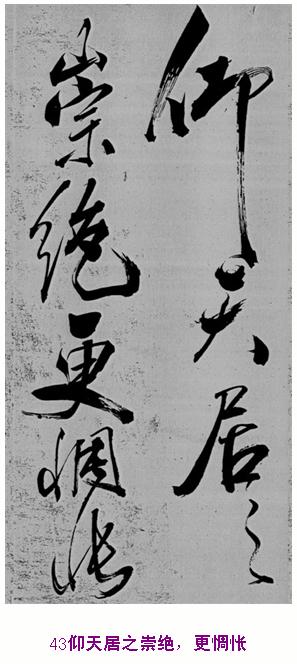 仰天居之
崇絶更惆悵
43仰天居之崇绝，更惆怅